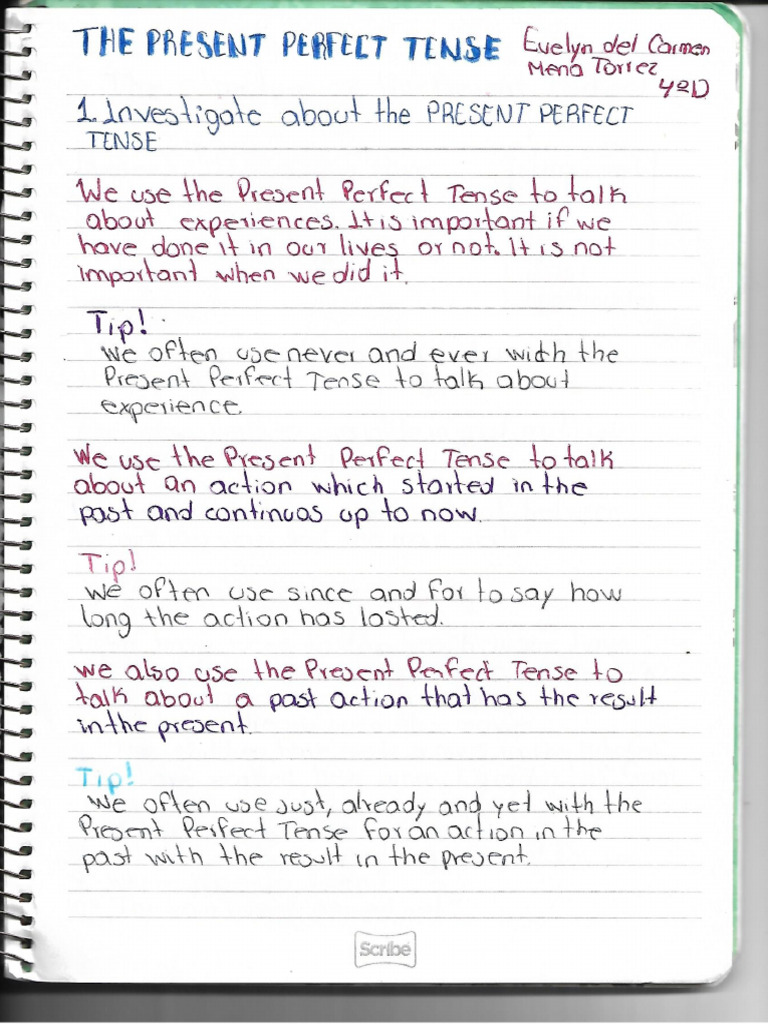 THE PRESENT PERFECT TENSE
Evelyn del Carmen
Mena Torrez
42D
1. Investigate about the PRESENT PERFECT
TENSE
We use the Present Perfect Tense to talk
about experiences. It is important if we
have done it in our lives or not. It is not
important when we did it.
Tip!
We often use never and ever with the
Present Perfect Tense to talk about
experience.
We use the Present Perfect Tense to talk
about an action which started in the
past and continuos up to now.
Tip!
We often use since and for to say how
long the action has lasted.
We also use the Present Perfect Tense to
talk about a past action that has the result
in the present.
Tip!
We often use just, already and yet with the
Present Perfect Tense for an action in the
past with the result in the present.
Scribe